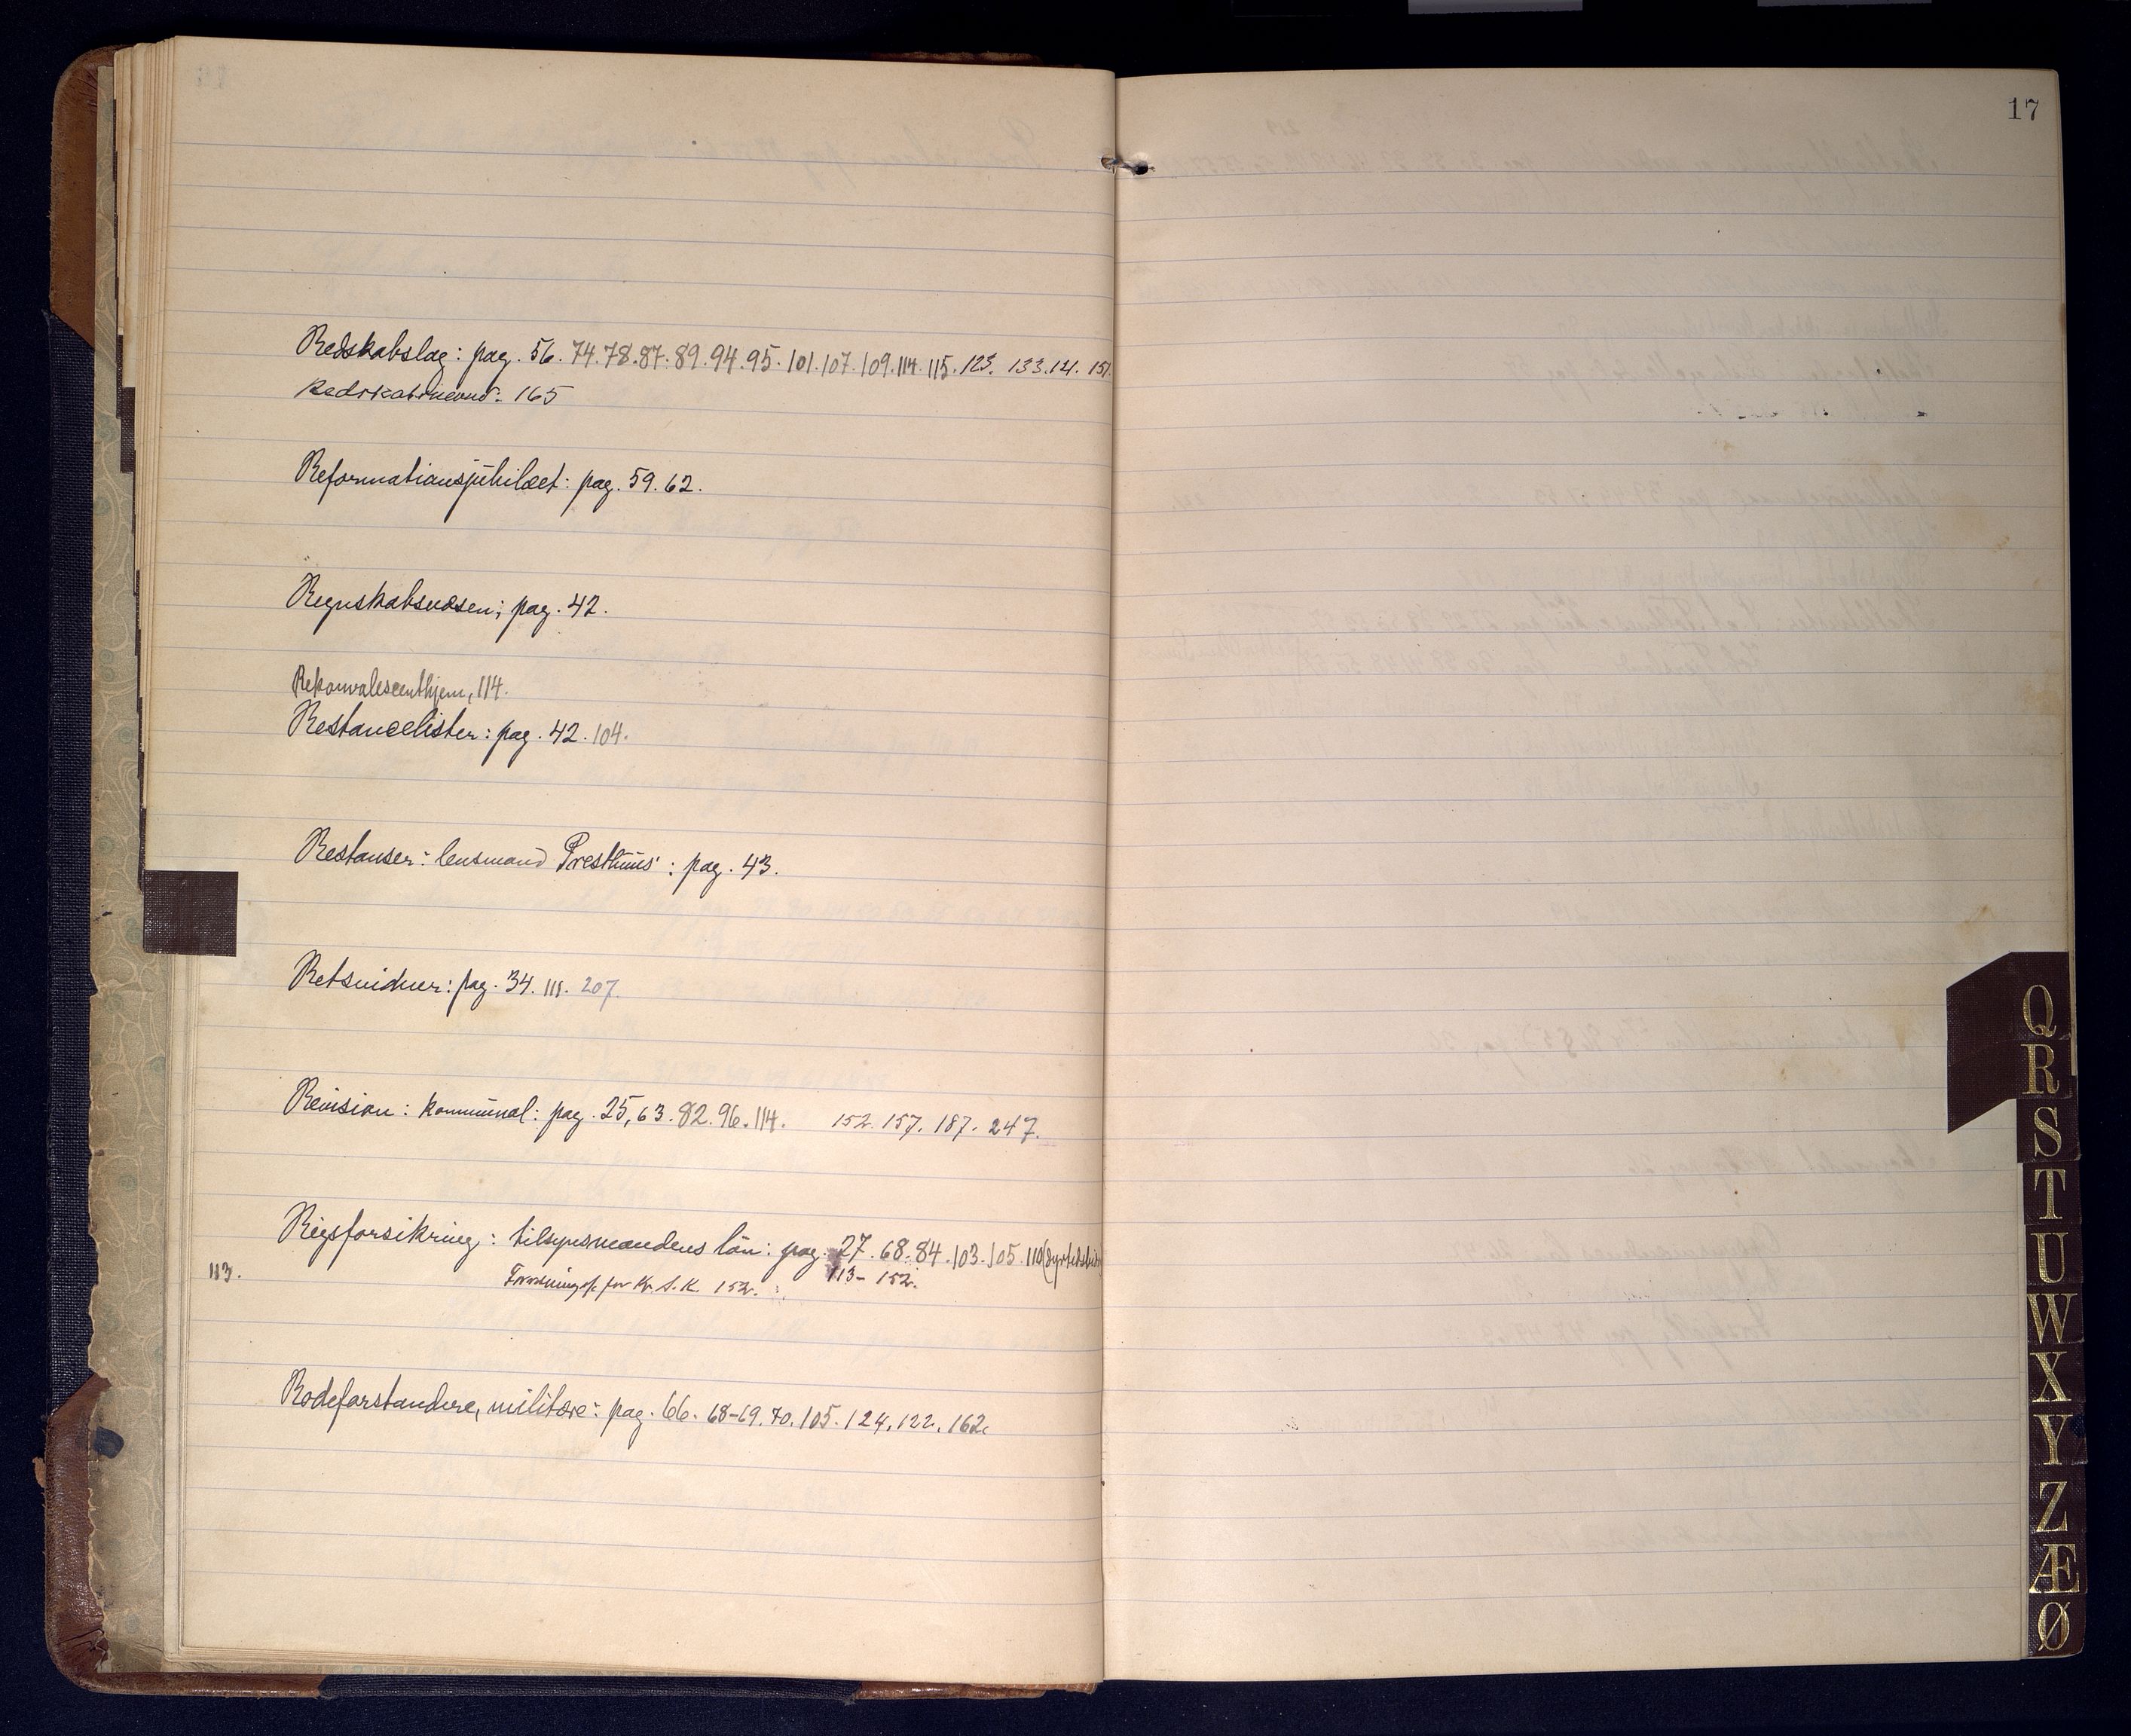 17
Redskabslag: pag. 56. 74. 78. 87. 89. 94. 95. 101. 107. 109. 114. 115. 123. 133. 141. 151.
Redskabsnevnd: 165
Reformationsjubilæet: pag. 59. 62.
Regnskabsvæsen; pag. 42.
Rekonvalescenthjem, 114.
Restancelister: pag. 42. 104.
Restanser: lensmand Presthus': pag. 43.
Retsvidner: pag. 34. 111. 207.
Revision: kommunal: pag. 25, 63. 82. 96. 114. 152. 157. 187. 247.
Rigsforsikring: tilsynsmandens løn: pag. 27. 68. 84. 103. 105. 110
113. for Kr. S. K. 152. 113 - 152.
Rodeforstandere, militære: pag. 66. 68-69. 70. 105. 124. 122. 162.
Q
R
S
T
U
W
X
Y
Z
Æ
Ø